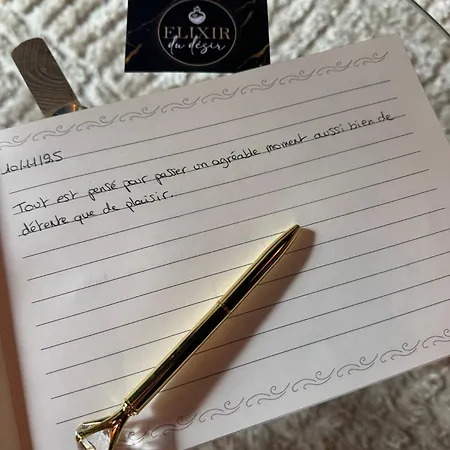 ELIXIR
du désir
10/11/25
Tout est pensé pour passer un agréable moment aussi bien de
détente que de plaisir.